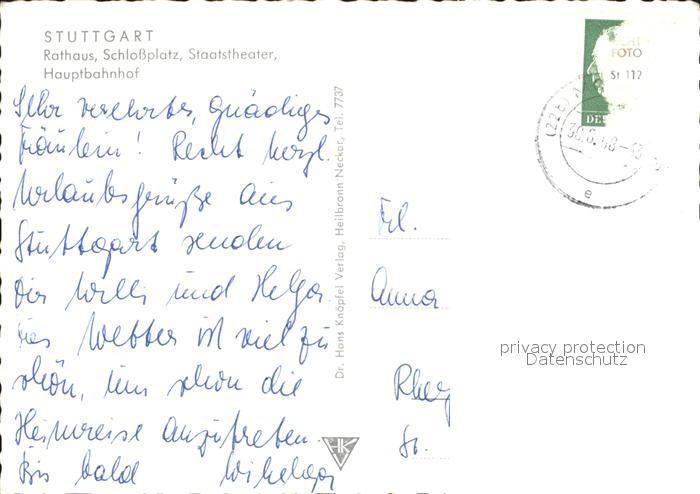 STUTTGART
Rathaus, Schloßplatz, Staatstheater,
Hauptbahnhof
Sehr verehrtes, gnädiges
Fräulein! Recht herzl.
Urlaubsgrüße aus
Stuttgart senden
Dir Willi und Helga
Das Wetter ist viel zu
schön, um schon die
Heimreise anzutreten.
Bis bald
Dr. Hans Knöpfel Verlag, Heilbronn-Neckar, Tel. 7737
HK
FOTO
St 112
DE
30.6.68-18
e
Frl.
Anna
privacy protection
Datenschutz